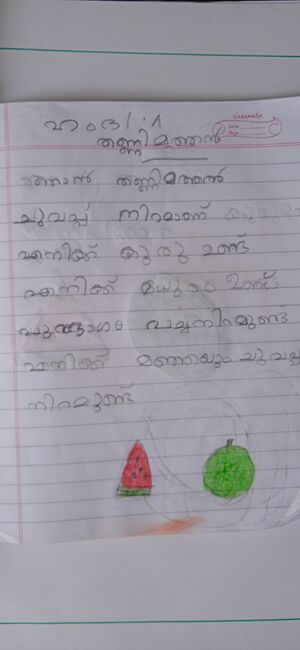 ഹംദ I A
തണ്ണിമത്തൻ
ഞാൻ തണ്ണിമത്തൻ
ചുവപ്പ് നിറമാണ്
എനിക്ക് കുരു ഉണ്ട്
എനിക്ക് മധുരം ഉണ്ട്
പുറഭാഗം പച്ചനിറമുണ്ട്
എനിക്ക് മഞ്ഞയും ചുവപ്പ
നിറമുണ്ട്